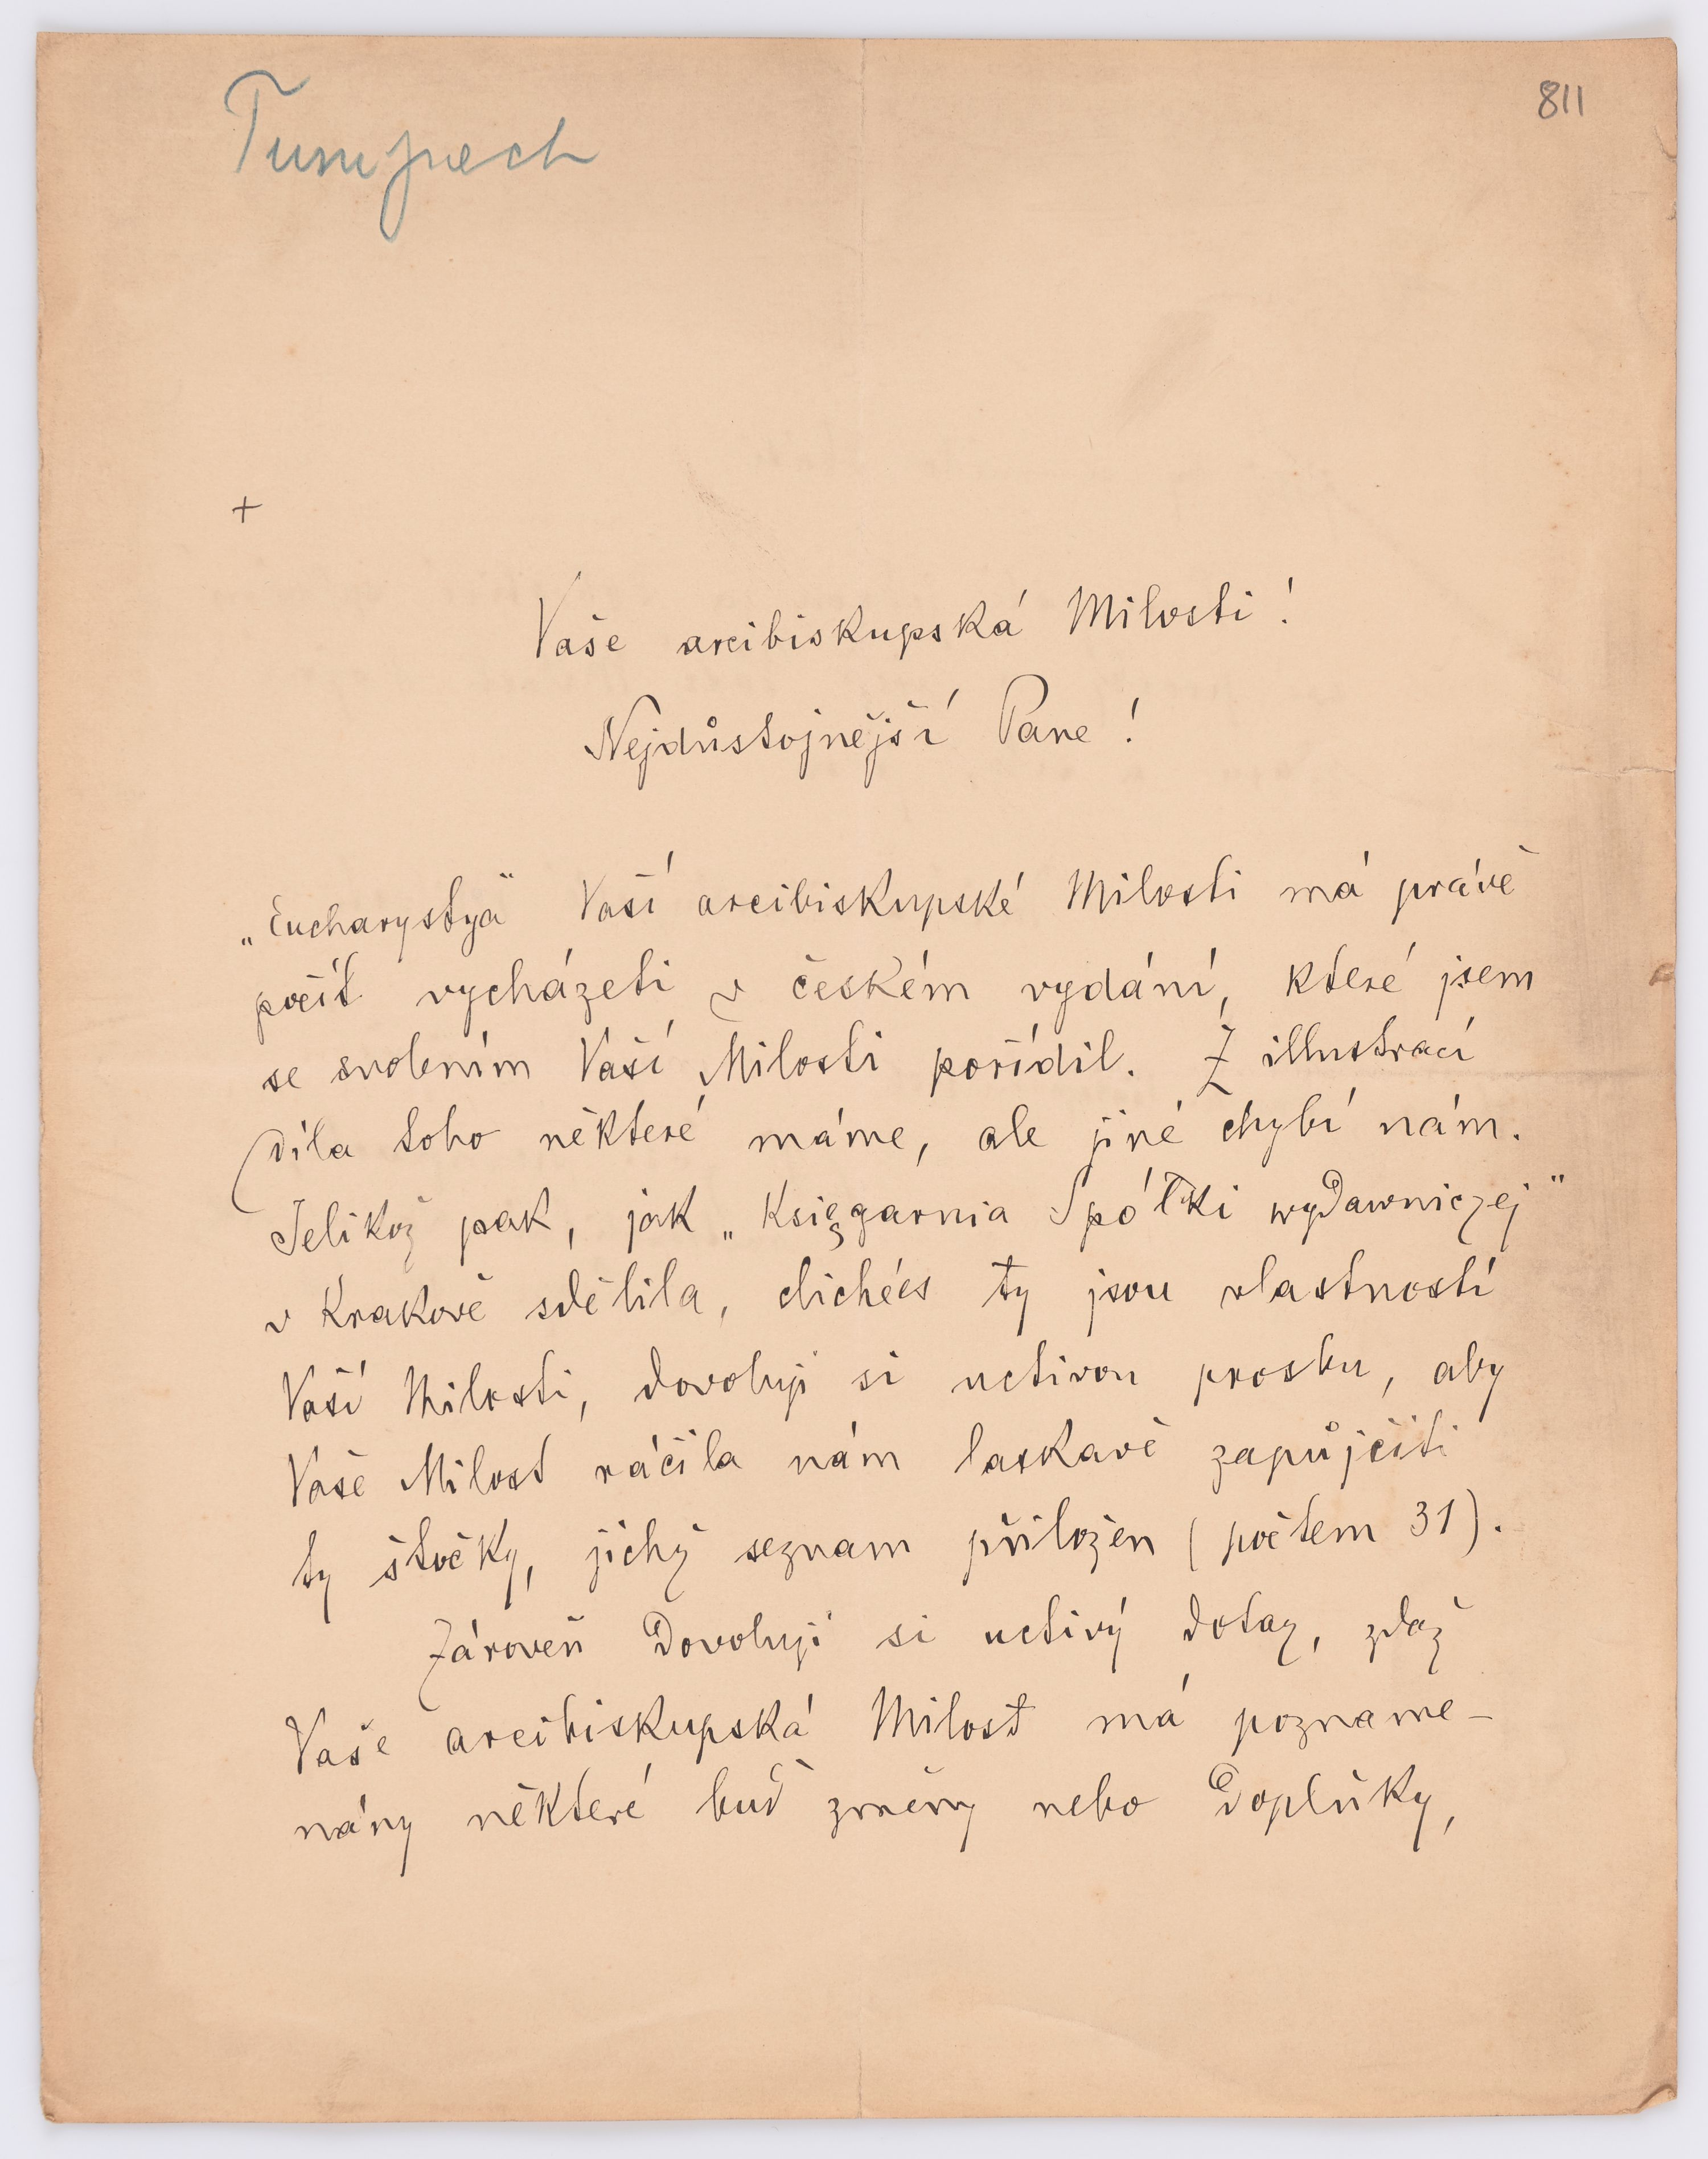 Tumpach
811
+
Vaše arcibiskupská Milosti!
Nejdůstojnější Pane!
„Eucharystya" Vaší arcibiskupské Milosti má právě
počít vycházeti v českém vydání, které jsem
se svolením Vaší Milosti pořídil. Z illustrací
díla toho některé máme, ale jiné chybí nám.
Jelikož pak, jak „Księgarnia Spółki wydawniczej"
v Krakově sdělila, clichées ty jsou vlastností
Vaší Milosti, dovoluji si uctivou prosbu, aby
Vaše Milost ráčila nám laskavě zapůjčiti
ty štočky, jichž seznam přiložen (počtem 31).
Zároveň dovoluji si uctivý dotaz, zdaž
Vaše arcibiskupská Milost má pozname-
nány některé buď změny nebo doplňky,